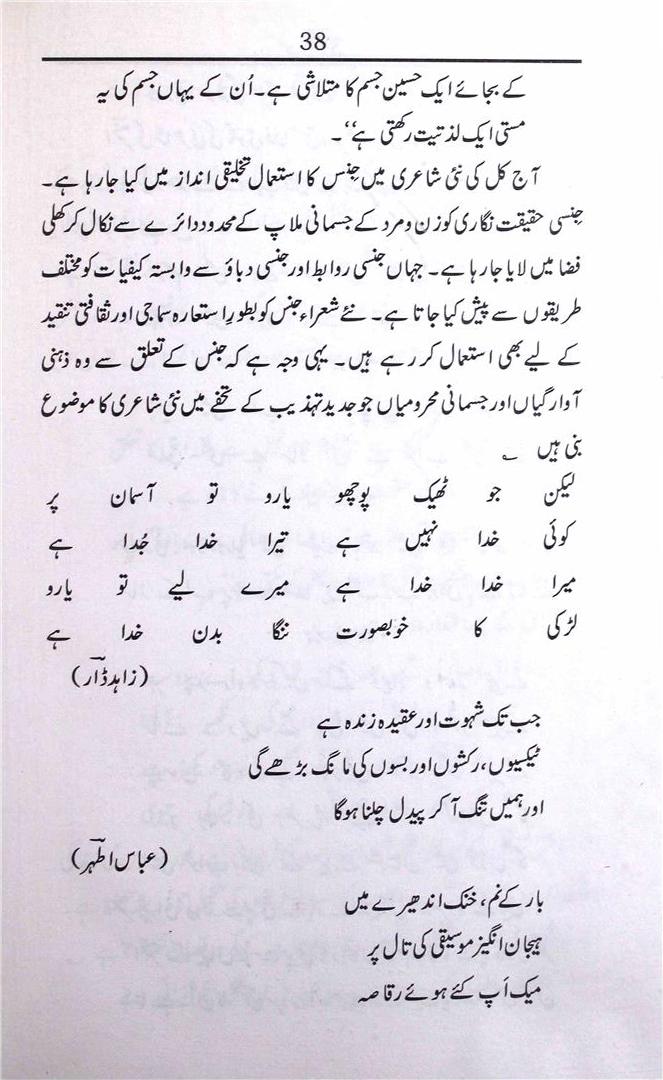 38
کے بجائے ایک حسین جسم کا متلاشی ہے۔ اُن کے یہاں جسم کی یہ
مستی ایک لذتیت رکھتی ہے‘‘۔
آج کل کی نئی شاعری میں جِنس کا استعمال تخلیقی انداز میں کیا جارہا ہے۔
جِنسی حقیقت نگاری کو زن و مرد کے جسمانی ملاپ کے محدود دائرے سے نکال کر کھلی
فضا میں لایا جارہا ہے۔ جہاں جنسی روابط اور جنسی دباؤ سے وابستہ کیفیات کو مختلف
طریقوں سے پیش کیا جاتا ہے۔ نئے شعراء جنس کو بطورِ استعارہ سماجی اور ثقافتی تنقید
کے لیے بھی استعمال کر رہے ہیں۔ یہی وجہ ہے کہ جنس کے تعلق سے وہ ذہنی
آوارگیاں اور جسمانی محرومیاں جو جدید تہذیب کے تحفے میں نئی شاعری کا موضوع
بنی ہیں ؎
لیکن جو ٹھیک پوچھو یارو تو آسمان پر
کوئی خدا نہیں ہے تیرا خدا جُدا ہے
میرا خدا خدا ہے میرے لیے تو یارو
لڑکی کا خوبصورت ننگا بدن خدا ہے
(زاہد ڈار)
جب تک شہوت اور عقیدہ زندہ ہے
ٹیکسیوں، رکشوں اور بسوں کی مانگ بڑھے گی
اور ہمیں تنگ آکر پیدل چلنا ہوگا
(عباس اطہر)
بار کے نم، خنک اندھیرے میں
ہیجان انگیز موسیقی کی تال پر
میک اَپ کئے ہوئے رقاصہ